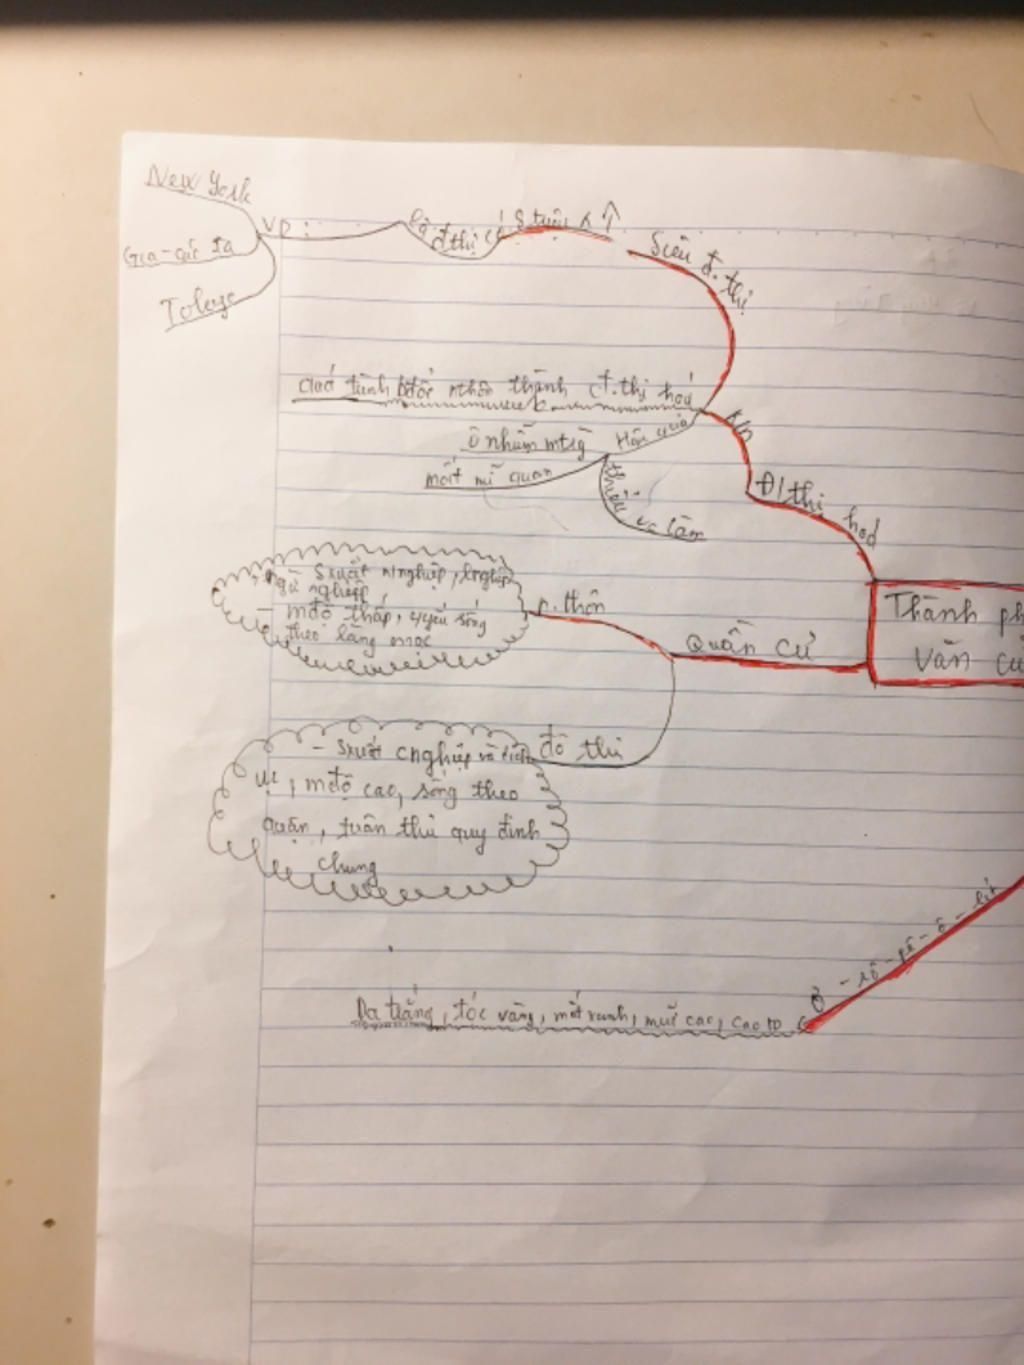 New York
VD:
là đ thị có S tuân
Siêu đ. thị
Gia-các ta
Tokyo
Quá trình bđổi nthôn thành đ.thị hoá
K/n
Hậu quả
ô nhiễm mtrg
mất mĩ quan
thiếu vc làm
Đ/thị hoá
- Sxuất nnghiệp, lnghiệp
ngư nghiệp
- mđộ thấp, sống
theo làng mạc
n. thôn
Quần cư
Thành ph
Văn cư
đô thị
- Sxuất cnghiệp và dịch
vụ, mđộ cao, sống theo
quận, tuân thủ quy định
chung
Ơ-rô-pê-ô-it
Da trắng, tóc vàng, mắt xanh, mũi cao, cao to